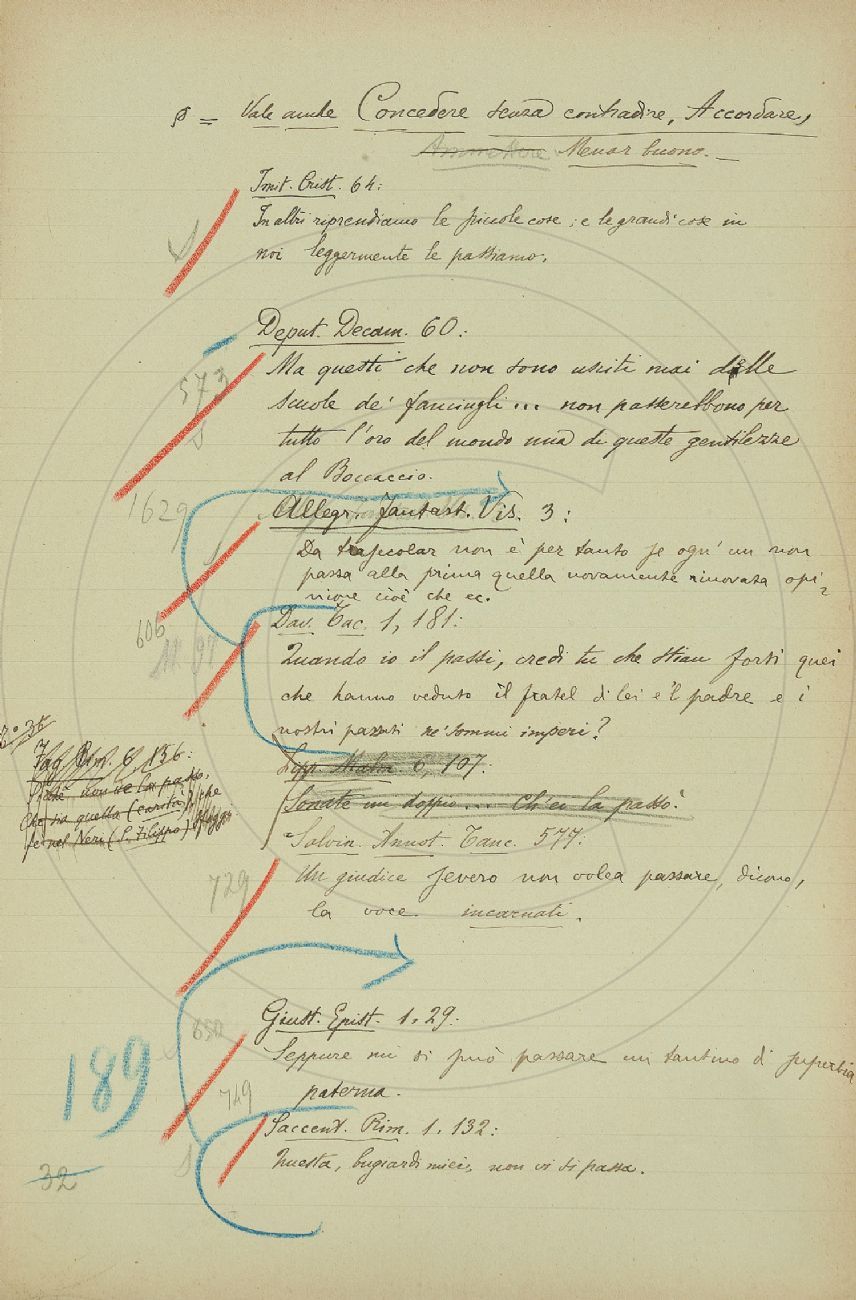 = Vale anche Concedere senza contradire, Accordare,
Ammettere Menar buono. _
Imit. Crist. 64:
In altri riprendiamo le piccole cose; e le grandi cose in
noi leggermente le passiamo.
Deput. Decam. 60:
573
Ma questi che non sono usciti mai delle
scuole de' fanciugli ... non passerebbono per
tutto l'oro del mondo una di queste gentilezze
al Boccaccio.
1629
Allegr. Fantast. Vis. 3:
Da trasecolar non è per tanto se ogn'un non
passa alla prima quella novamente rinovata opi-
nione cioè che ec.
606
Dav. Tac. 1, 181:
Quando io il passi, credi tu che stian forti quei
che hanno veduto il fratel di lei e 'l padre e i
nostri passati ne' sommi imperi?
Fag. Rim. 6, 156:
non se la passo,
Che sia quella (carità) che
fe nel Neri (S. Filippo)
Lipp. Malm. 6, 107:
Sonate un doppio ... Ch'ei la passò.
Salvin. Annot. Tanc. 577:
729
Un giudice severo non volea passare, dicono,
la voce incarnati.
Giust. Epist. 1, 29:
650
Seppure mi si può passare un tantino di superbia
paterna.
189
749
Saccent. Rim. 1, 132:
Questa, bugiardi miei, non vi si passa.
32